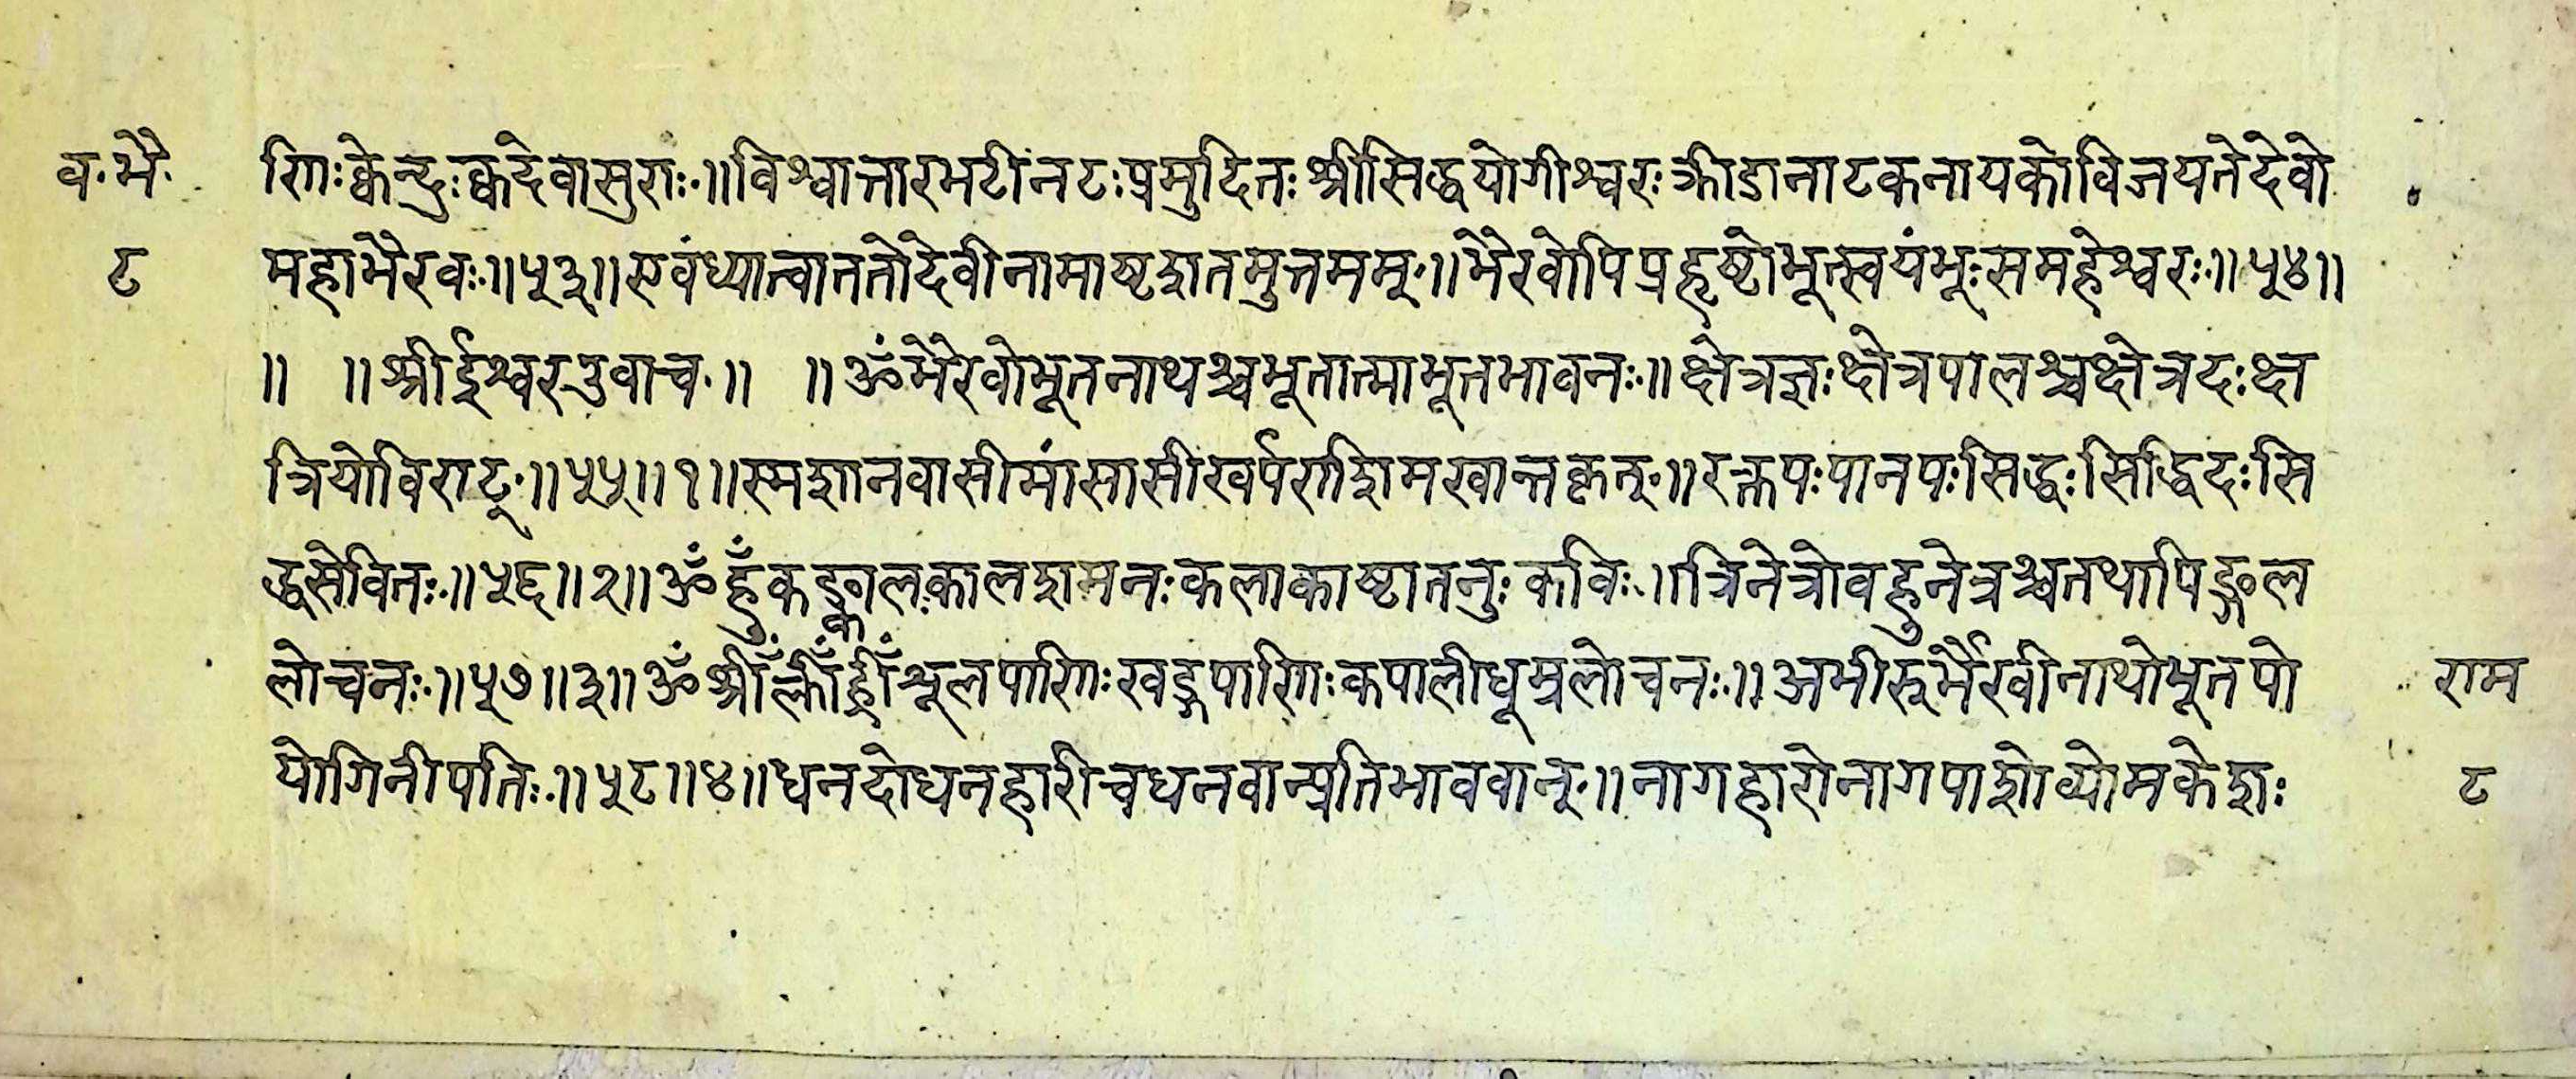 व. भै. णिः क्वेन्द्रः क्व देवासुराः ॥ विश्वात्तारभटीं नटः प्रमुदितः श्रीसिद्धयोगीश्वरः क्रीडानाटकनायको विजयते देवो
८ महाभैरवः ॥ ५३ ॥ एवं ध्यात्वा ततो देवी नामाष्टशतमुत्तमम् ॥ भैरवोपि प्रहृष्टोभूत्स्वयंभूः स महेश्वरः ॥ ५४ ॥
॥ ॥ श्रीईश्वर उवाच ॥ ॥ ॐ भैरवो भूतनाथश्च भूतात्मा भूतभावनः ॥ क्षेत्रज्ञः क्षेत्रपालश्च क्षेत्रदः क्ष
त्रियो विराट् ॥ ५५ ॥ १ ॥ स्मशानवासी मांसासी खर्पराशी मखान्तकृत् ॥ रक्तपः पानपः सिद्धः सिद्धिदः सि
द्धसेवितः ॥ ५६ ॥ २ ॥ ॐ हुँ कङ्कालः कालशमनः कलाकाष्टातनुः कविः ॥ त्रिनेत्रो वहुनेत्रश्च तथा पिङ्गल
लोचनः ॥ ५७ ॥ ३ ॥ ॐ श्रीँ क्लीँ ह्रीँ श्रूलपाणिः खड्गपाणिः कपाली धूम्रलोचनः ॥ अभीरूर्भैरवीनाथो भूतपो राम
योगिनीपतिः ॥ ५८ ॥ ४ ॥ धनदो धनहारी च धनवान्प्रतिभाववान् ॥ नागहारो नागपाशो व्योमकेशः ८